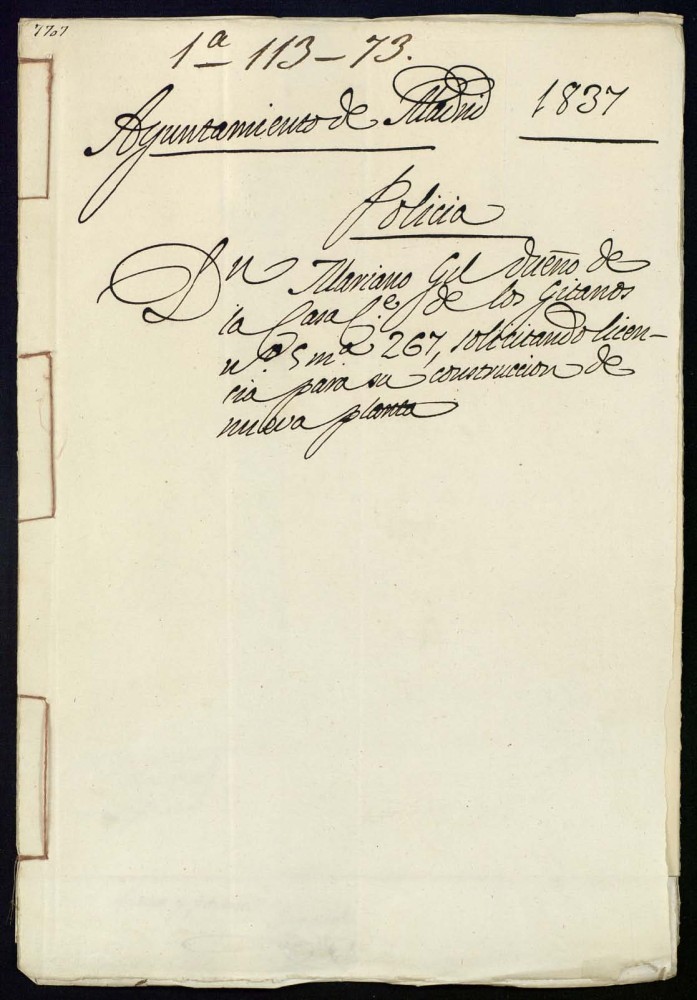 7707
1ª 113-73.
Ayuntamiento de Madrid 1837
Policia
Dn Mariano Gil dueño de
la Casa C.e de los Gitanos
nº 5 mª 267, solicitando licen-
cia para su construccion de
nueva planta